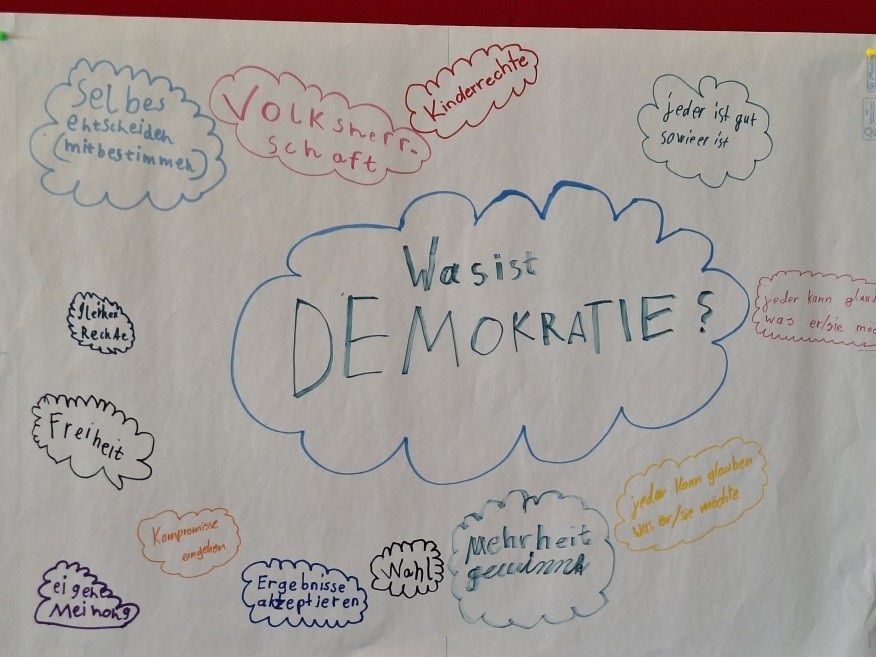 Selbes
entscheiden
(mitbestimmen)
VOLKSherr-
schaft
Kinderrechte
jeder ist gut
sowie er ist
Was ist
DEMOKRATIE?
jeder kann glaub
was er/sie möc
gleichen
Rechte
Freiheit
jeder kann glauben
was er/sie möchte
Kompromisse
eingehen
eigene
Meinong
Ergebnisse
akzeptieren
Wahl
Mehrheit
gewinnt